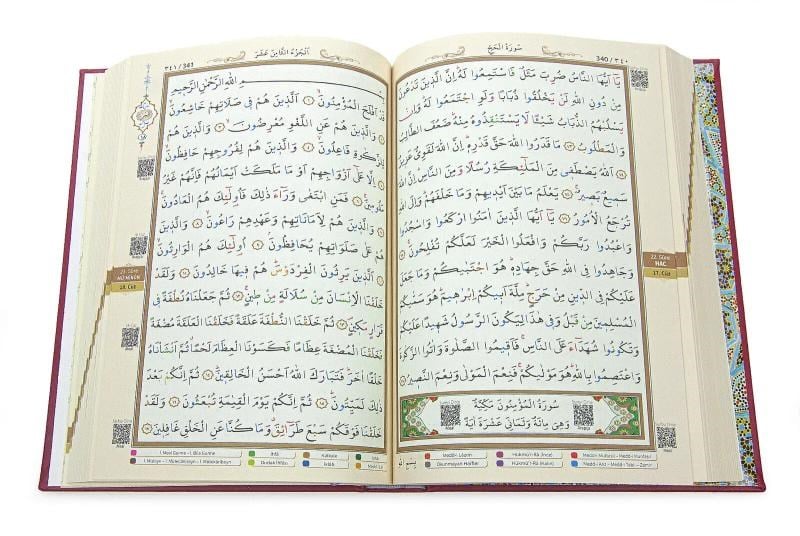 سُورَةُ الْحَجِّ
340 / ٣٤٠
يَٓا اَيُّهَا النَّاسُ ضُرِبَ مَثَلٌ فَاسْتَمِعُوا لَهُۜ اِنَّ الَّذ۪ينَ تَدْعُونَ
مِنْ دُونِ اللّٰهِ لَنْ يَخْلُقُوا ذُبَابًا وَلَوِ اجْتَمَعُوا لَهُۜ وَاِنْ
يَسْلُبْهُمُ الذُّبَابُ شَيْـًٔا لَا يَسْتَنْقِذُوهُ مِنْهُۜ ضَعُفَ الطَّالِبُ
وَالْمَطْلُوبُ ﴿٧٣﴾ مَا قَدَرُوا اللّٰهَ حَقَّ قَدْرِه۪ۜ اِنَّ اللّٰهَ لَقَوِيٌّ عَز۪يزٌ
﴿٧٤﴾ اَللّٰهُ يَصْطَف۪ي مِنَ الْمَلٰٓئِكَةِ رُسُلًا وَمِنَ النَّاسِۜ اِنَّ اللّٰهَ
سَم۪يعٌ بَص۪يرٌۚ ﴿٧٥﴾ يَعْلَمُ مَا بَيْنَ اَيْد۪يهِمْ وَمَا خَلْفَهُمْۜ وَاِلَى اللّٰهِ
تُرْجَعُ الْاُمُورُ ﴿٧٦﴾ يَٓا اَيُّهَا الَّذ۪ينَ اٰمَنُوا ارْكَعُوا وَاسْجُدُوا
وَاعْبُدُوا رَبَّكُمْ وَافْعَلُوا الْخَيْرَ لَعَلَّكُمْ تُفْلِحُونَۚ ﴿٧٧﴾
وَجَاهِدُوا فِي اللّٰهِ حَقَّ جِهَادِه۪ۜ هُوَ اجْتَبٰيكُمْ وَمَا جَعَلَ
عَلَيْكُمْ فِي الدّ۪ينِ مِنْ حَرَجٍۜ مِلَّةَ اَب۪يكُمْ اِبْرٰه۪يمَۜ هُوَ سَمّٰيكُمُ
الْمُسْلِم۪ينَ مِنْ قَبْلُ وَف۪ي هٰذَا لِيَكُونَ الرَّسُولُ شَه۪يدًا عَلَيْكُمْ
وَتَكُونُوا شُهَدَٓاءَ عَلَى النَّاسِۚ فَاَق۪يمُوا الصَّلٰوةَ وَاٰتُوا الزَّكٰوةَ
وَاعْتَصِمُوا بِاللّٰهِۜ هُوَ مَوْلٰيكُمْۚ فَنِعْمَ الْمَوْلٰى وَنِعْمَ النَّص۪يرُ ﴿٧٨﴾
سُورَةُ الْمُؤْمِنُونَ مَكِّيَّةٌ
وَهِيَ مِائَةٌ وَثَمَانِيَ عَشْرَةَ اٰيَةً
22. Sûre
HAC
17. Cüz
Medd-i Lâzım
Hükmü'r-Râ (İnce)
Medd-i Muttasıl - Medd-i Munfasıl
Okunmayan Harfler
Hükmü'r-Râ (Kalın)
Medd-i Arız - Medd-i Tabii - Zamir
اَلْجُزْءُ الثَّامِنَ عَشَرَ
٣٤١ / 341
بِسْمِ اللّٰهِ الرَّحْمٰنِ الرَّح۪يمِ
قَدْ اَفْلَحَ الْمُؤْمِنُونَۙ ﴿١﴾ اَلَّذ۪ينَ هُمْ ف۪ي صَلَاتِهِمْ خَاشِعُونَۙ
﴿٢﴾ وَالَّذ۪ينَ هُمْ عَنِ اللَّغْوِ مُعْرِضُونَۙ ﴿٣﴾ وَالَّذ۪ينَ هُمْ
لِلزَّكٰوةِ فَاعِلُونَۙ ﴿٤﴾ وَالَّذ۪ينَ هُمْ لِفُرُوجِهِمْ حَافِظُونَۙ
﴿٥﴾ اِلَّا عَلٰٓى اَزْوَاجِهِمْ اَوْ مَا مَلَكَتْ اَيْمَانُهُمْ فَاِنَّهُمْ غَيْرُ
مَلُوم۪ينَۚ ﴿٦﴾ فَمَنِ ابْتَغٰى وَرَٓاءَ ذٰلِكَ فَاُو۬لٰٓئِكَ هُمُ الْعَادُونَۚ
﴿٧﴾ وَالَّذ۪ينَ هُمْ لِاَمَانَاتِهِمْ وَعَهْدِهِمْ رَاعُونَۙ ﴿٨﴾ وَالَّذ۪ينَ
هُمْ عَلٰى صَلَوَاتِهِمْ يُحَافِظُونَۢ ﴿٩﴾ اُو۬لٰٓئِكَ هُمُ الْوَارِثُونَۙ
﴿١٠﴾ اَلَّذ۪ينَ يَرِثُونَ الْفِرْدَوْسَۜ هُمْ ف۪يهَا خَالِدُونَ ﴿١١﴾ وَلَقَدْ
خَلَقْنَا الْاِنْسَانَ مِنْ سُلَالَةٍ مِنْ ط۪ينٍۚ ﴿١٢﴾ ثُمَّ جَعَلْنَاهُ نُطْفَةً ف۪ي
قَرَارٍ مَك۪ينٍۖ ﴿١٣﴾ ثُمَّ خَلَقْنَا النُّطْفَةَ عَلَقَةً فَخَلَقْنَا الْعَلَقَةَ مُضْغَةً
فَخَلَقْنَا الْمُضْغَةَ عِظَامًا فَكَسَوْنَا الْعِظَامَ لَحْمًا ثُمَّ اَنْشَأْنَاهُ
خَلْقًا اٰخَرَۜ فَتَبَارَكَ اللّٰهُ اَحْسَنُ الْخَالِق۪ينَۜ ﴿١٤﴾ ثُمَّ اِنَّكُمْ بَعْدَ
ذٰلِكَ لَمَيِّتُونَۜ ﴿١٥﴾ ثُمَّ اِنَّكُمْ يَوْمَ الْقِيٰمَةِ تُبْعَثُونَ ﴿١٦﴾ وَلَقَدْ
خَلَقْنَا فَوْقَكُمْ سَبْعَ طَرَٓائِقَۗ وَمَا كُنَّا عَنِ الْخَلْقِ غَافِل۪ينَ ﴿١٧﴾
23. Sûre
MÜ'MİNÛN
18. Cüz
İhfâ
Kalkale
Dudak İhfâsı
İklâb